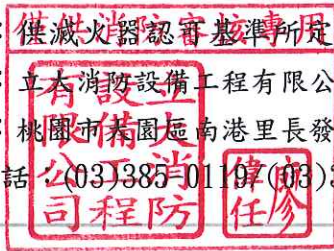 僅供消防審核專用
滅火器認可基準所定
立大消防設備工程有限公
桃園市大園區南港里長發
話：(03)385-0119/(03)3
立大消防
設備工程
有限公司
廖偉任